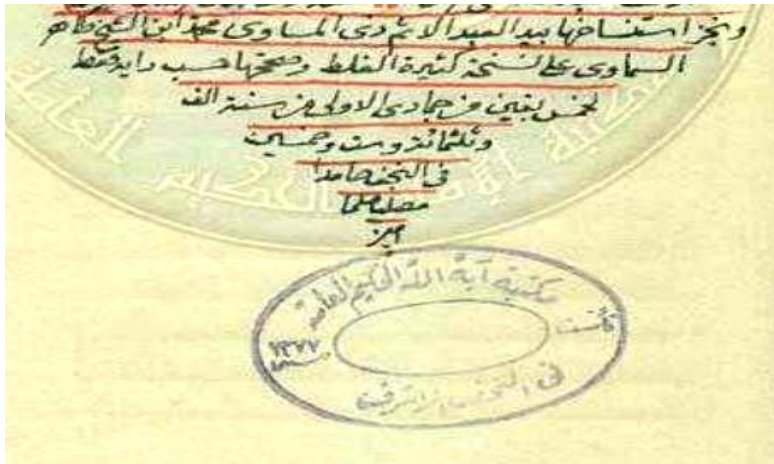 ونجز استنساخها بيد العبد الاثم ذي المساوي محمد ابن الشيخ طاهر
السماوي على نسخة كثيرة الغلط وصححها حسب دايه فقط
لخمس بقين من جمادى الاولى من سنة الف
وثلثمائة وست وخمسين
في النجف حامدا
مصليا مسلما
مكتبة آية الله الحكيم العامة
تأسست
سنة ١٣٧٧
في النجف الاشرف